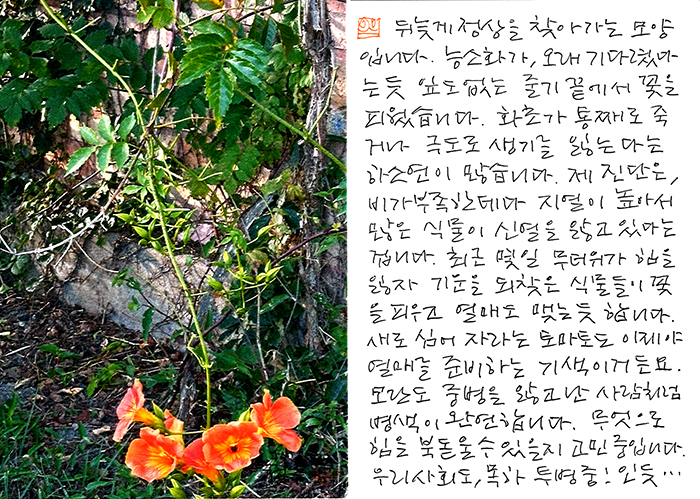 뒤늦게 정상을 찾아가는 모양
입니다. 능소화가, 오래 기다렸다
는듯 잎도 없는 줄기 끝에서 꽃을
피웠습니다. 화초가 통째로 죽
거나 극도로 생기를 잃는다는
하소연이 많습니다. 제 진단은,
비가 부족한데다 지열이 높아서
많은 식물이 신열을 앓고 있다는
겁니다. 최근 몇일 무더위가 힘을
잃자 기운을 되찾은 식물들이 꽃
을 피우고 열매도 맺는듯 합니다.
새로 심어 자라는 토마토도 이제야
열매를 준비하는 기색이거든요.
모란도 중병을 앓고난 사람처럼
병색이 완연합니다. 무엇으로
힘을 북돋울 수 있을지 고민 중입니다.
우리사회도, 목하 투병중! 인듯…